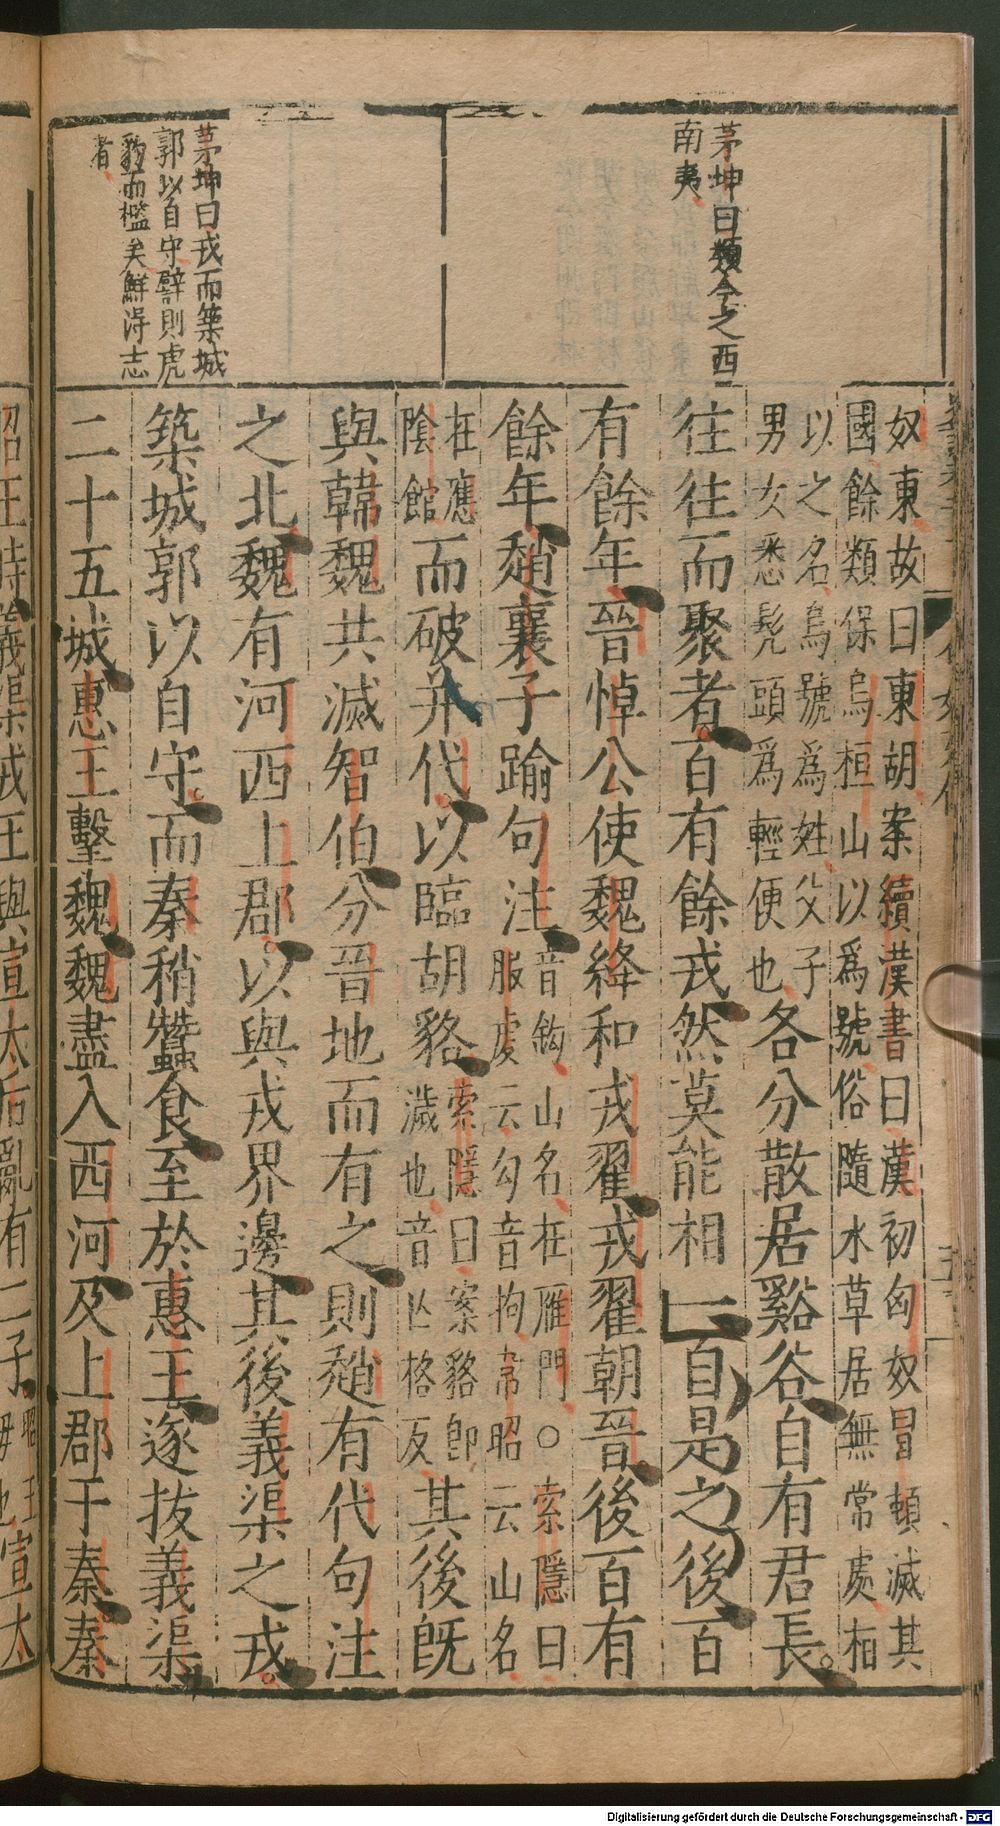 茅坤曰類今之西
南夷
茅坤曰戎而築城
郭以自守譬則虎
豹而檻矣鮮得志
者
奴東故曰東胡案續漢書曰漢初匈奴冒頓滅其
國餘類保烏桓山以爲號俗隨水草居無常處桓
以之名烏號爲姓父子
男女悉髡頭爲輕便也
各分散居谿谷自有君長
往往而聚者百有餘戎然莫能相一自是之後百
有餘年晉悼公使魏絳和戎翟戎翟朝晉後百有
餘年趙襄子踰句注
音鈎山名在雁門○索隱曰
服虔云勾音拘韋昭云山名
在應
陰館
而破并代以臨胡貉
索隱曰案貉即
濊也音亡格反
其後既
與韓魏共滅智伯分晉地而有之則趙有代句注
之北魏有河西上郡以與戎界邊其後義渠之戎
築城郭以自守而秦稍蠶食至於惠王遂拔義渠
二十五城惠王擊魏魏盡入西河及上郡于秦秦
昭王時義渠戎王與宣太后亂有二子
昭王
母也宣太
Digitalisierung gefördert durch die Deutsche Forschungsgemeinschaft - DFG